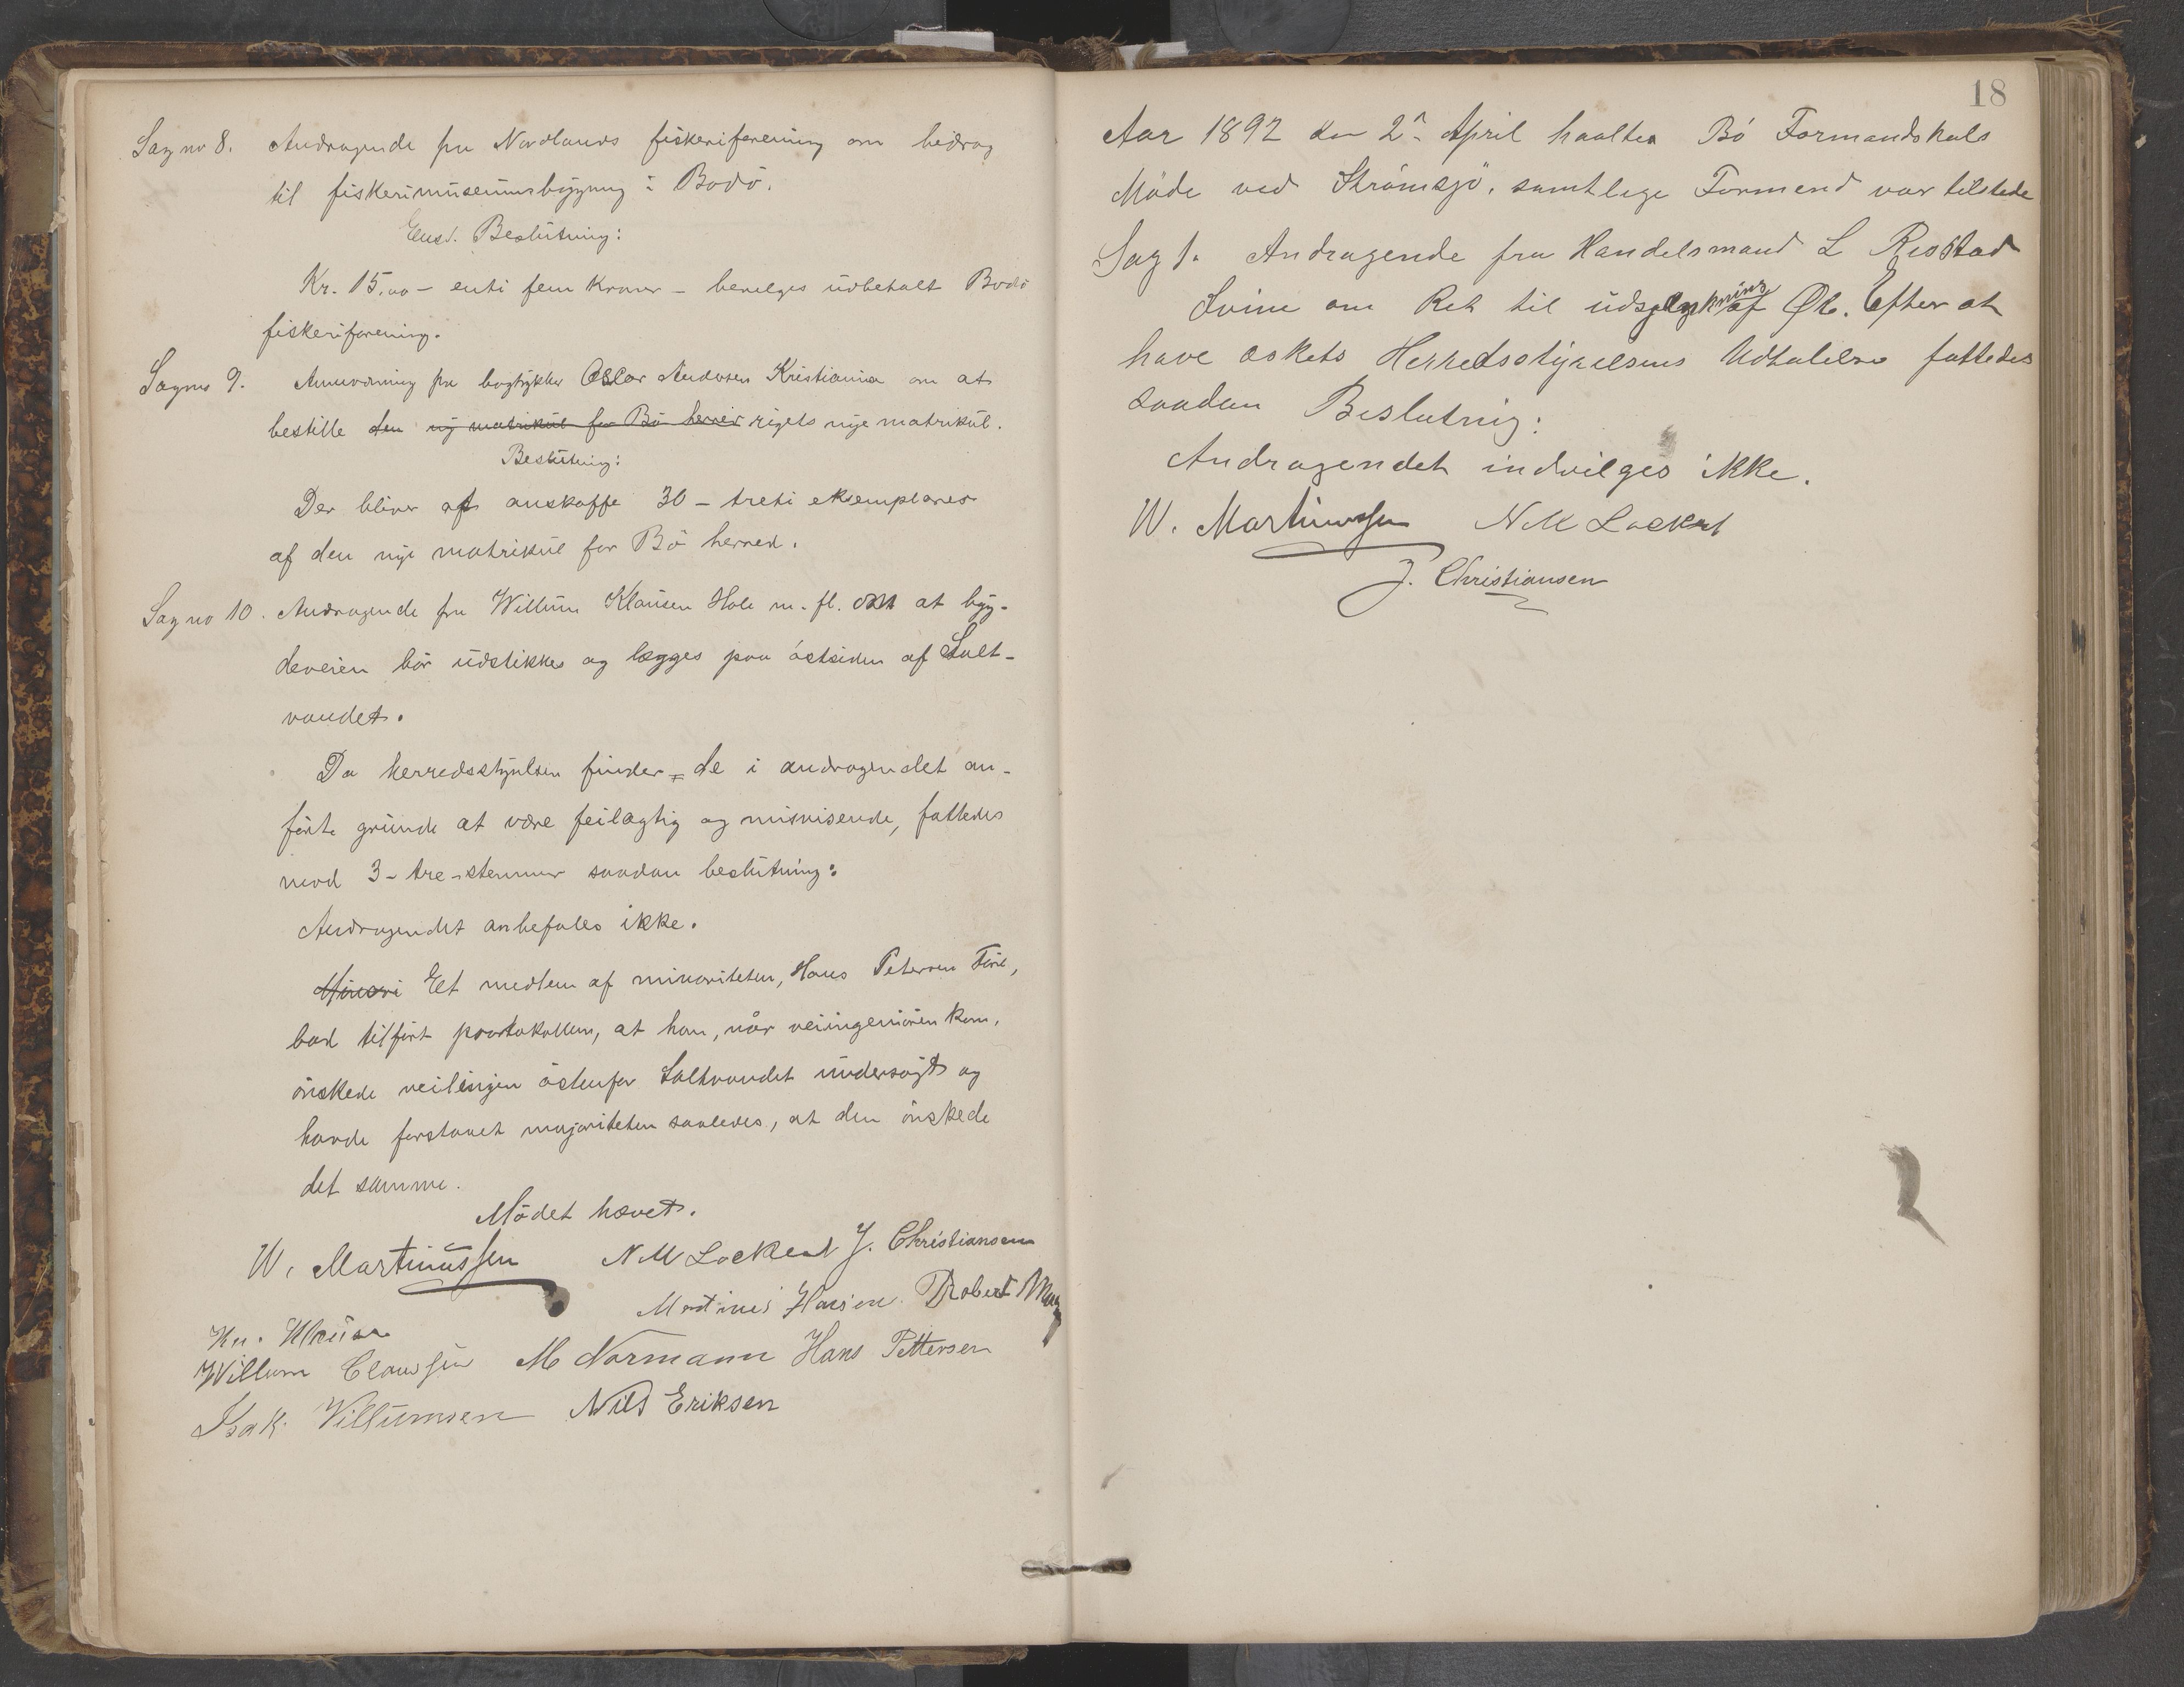 Sag no 8. Andragende fra Nordlands fiskeriforening om bidrag
til fiskerimuseumsbygning i Bodö.
Enst. Beslutning:
Kr. 15,00 – enti fem kroner – bevilges udbetalt Bodö
fiskeriforening.
Sag no 9. Anmodning fra bogtrykker Oscar Andersen Kristiania om at
bestille den ny matrikül for Bö herred rigets nye matrikül.
Beslutning:
Der bliver at anskaffe 30 – treti eksemplarer
af den nye matrikül for Bö herred.
Sag no 10. Andragende fra Willum Klausen Hole m. fl. om at byg-
deveien bör üdstikkes og lægges paa östsiden af Salt-
vandet.
Da herredsstyrelsen finder de i andragendet an-
förte grunde at være feilagtig og misvisende, fattedes
mod 3 – tre – stemmer saadan beslutning:
Andragendet anbefales ikke.
Minori Et medlem af minoriteten, Hans Petersen,
bad tilfört protokollen, at han, når veiingeniören kom,
önskede veilinjen östenfor Saltvandet undersögt og
havde forstaaet majoriteten saaledes, at den önskede
det samme.
Mödet hævet.
W. Martinussen N M Lockert J. Christiansen
Martines Hansen Robert
Willum Clausen M Normann Hans Pettersen
Isak Villumsen Nils Eriksen
18
Aar 1892 den 2n April haaltes Bö Formandskals
Möde ved Strömsjö, samtlige Formend var tilstede
Sag 1. Andragende fra Handelsmand L Ristad
Svine om Ret til udskjænkning af Øl. Efter at
have æskets Herredsstyrelsens Udtalelse fattedes
saadan Beslutnig:
Andragendet indvilges ikke.
W. Martinussen N M Lockert
J. Christiansen